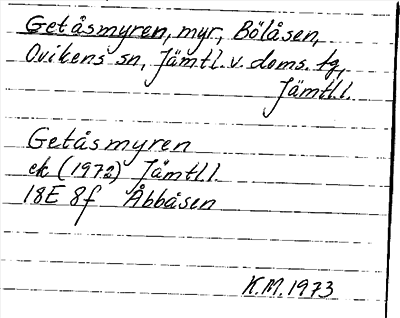 Getåsmyren, myr, Bölåsen,
Ovikens sn, Jämtl. v. doms. tg,
Jämtl.l.
Getåsmyren
ek (1972) Jämtl.l.
18E 8f Åbbåsen
K.M. 1973